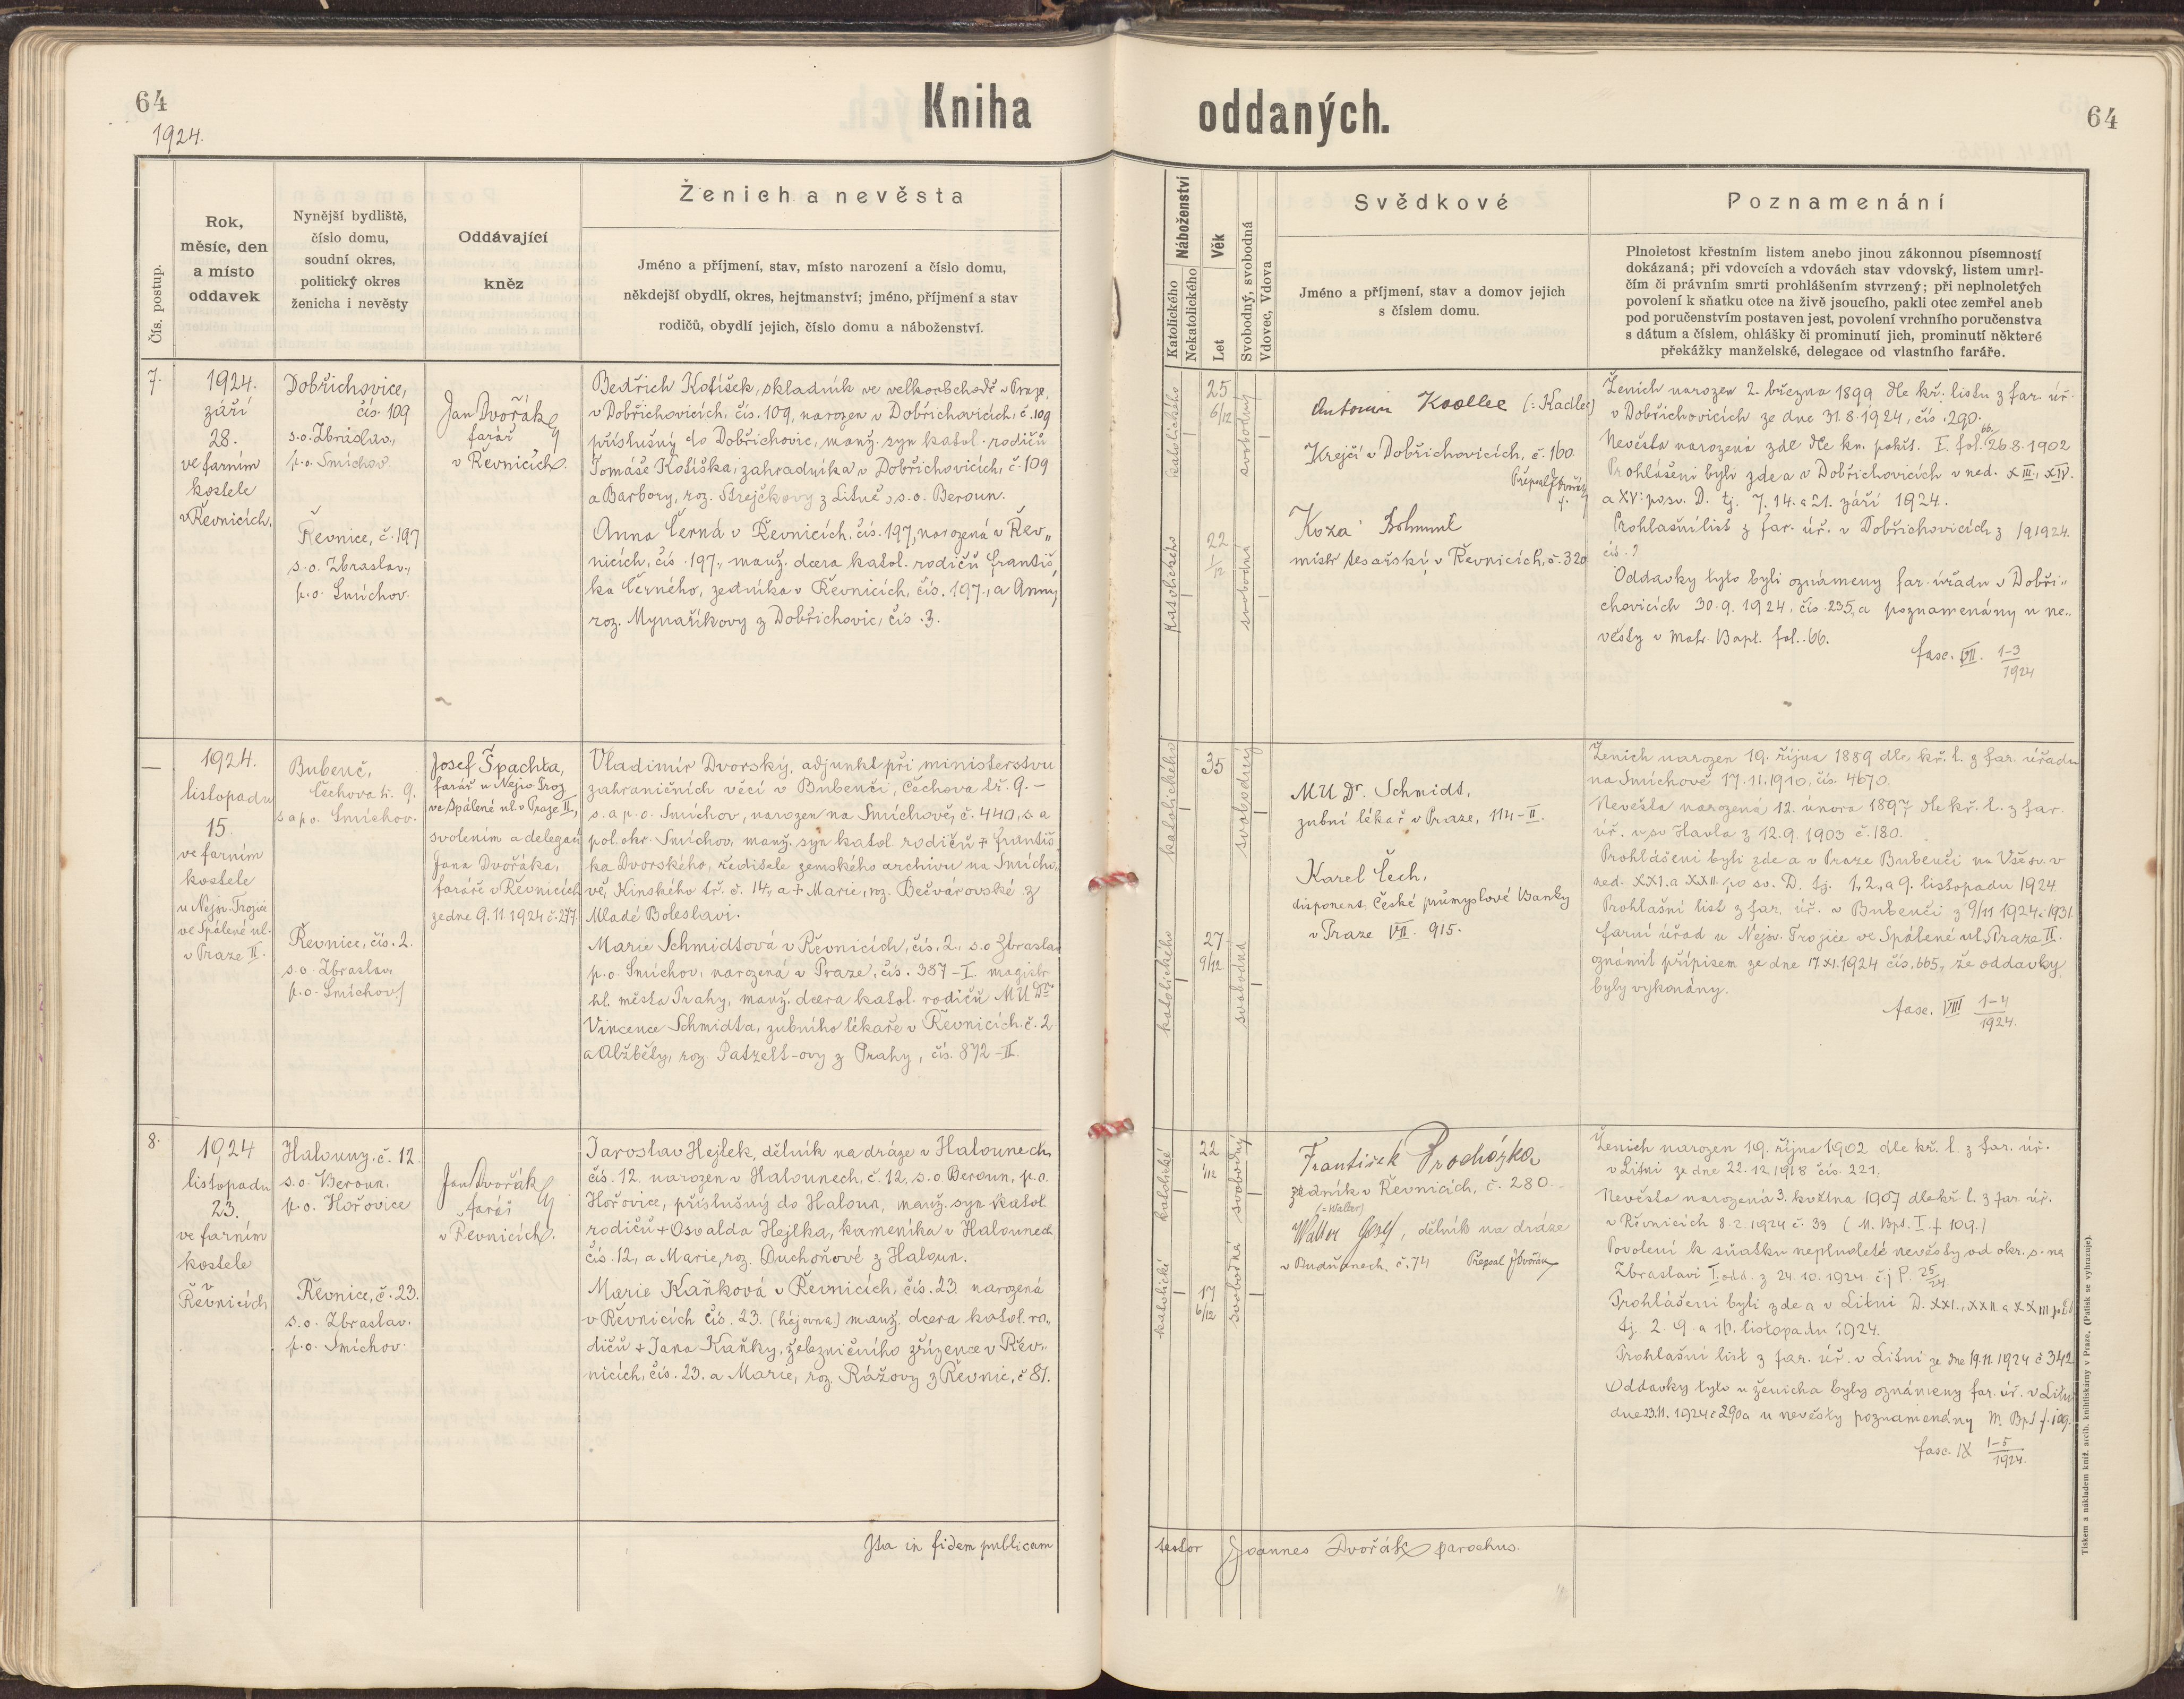 64
1924.
Kniha oddaných.
64
Čís. postup.
Rok,
měsíc, den
a místo
oddavek
Nynější bydliště,
číslo domu,
soudní okres,
politický okres
ženicha i nevěsty
Oddávající
kněz
Ženich a nevěsta
Jméno a příjmení, stav, místo narození a číslo domu,
někdejší obydlí, okres, hejtmanství; jméno, příjmení a stav
rodičů, obydlí jejich, číslo domu a náboženství.
Náboženství
Katolického
Nekatolického
Věk
Let
Svobodný, svobodná
Vdovec, Vdova
Svědkové
Jméno a příjmení, stav a domov jejich
s číslem domu.
Poznamenání
Plnoletost křestním listem anebo jinou zákonnou písemností
dokázaná; při vdovcích a vdovách stav vdovský, listem umrl-
čím či právním smrti prohlášením stvrzený; při neplnoletých
povolení k sňatku otce na živě jsoucího, pakli otec zemřel aneb
pod poručenstvím postaven jest, povolení vrchního poručenstva
s dátum a číslem, ohlášky či prominutí jich, prominutí některé
překážky manželské, delegace od vlastního faráře.
7.
1924.
září
28.
ve farním
kostele
v Řevnicích.
Dobřichovice,
čís. 109
s.o. Zbraslav.,
p.o. Smíchov.
Řevnice, č. 197
s.o. Zbraslav.,
p.o. Smíchov.
Jan Dvořák
farář
v Řevnicích.
Bedřich Kotíšek, skladník ve velkoobchodě v Praze,
v Dobřichovicích, čís. 109, narozen v Dobřichovicích, č. 109
příslušný do Dobřichovic, manž. syn katol. rodičů
Tomáše Kotíška, zahradníka v Dobřichovicích, č. 109
a Barbory, roz. Strejčkovy z Litně, s.o. Beroun.
Anna Černá v Řevnicích, čís. 197, narozená v Řev„
nicích, čís. 197., manž. dcera katol. rodičů Františ„
ka Černého, zedníka v Řevnicích, čís. 197., a Anny
roz. Mynaříkovy z Dobřichovic, čís. 3.
katolického
25
6/12
svobodný
katolického
22
1/12
svobodna
Antonin Kadlec (: Kadlec)
Krejčí v Dobřichovicích, č. 160.
Přepsal JDvořák
f.
Koza Bohumil
mistr tesařský v Řevnicích, č. 320
Ženich narozen 2. března 1899 dle kř. listu z far. úř.
v Dobřichovicích ze dne 31.8.1924, čís. 290.
Nevěsta narozená zde dle kn. pokřt. I. fol. 66. 26.8.1902
Prohlášeni byli zde a v Dobřichovicích v ned. XIII., XIV.
a XV. po sv. D. tj. 7. 14. a 21. září 1924.
Prohlašní list z far. úř. v Dobřichovicích z 191924.
čís. ?
Oddavky tyto byli oznámeny far. úřadu v Dobři„
chovicích 30.9.1924, čís. 235, a poznamenány u ne„
věsty v Matr. Bapt. fol. 66.
fasc. VII. 1-3/1924
—
1924.
listopadu
15.
ve farním
kostele
u Nejsv. Trojice
ve Spálené ul.
v Praze II.
Bubeneč,
Čechova tř. 9.
s a p.o. Smíchov.
Řevnice, čís. 2.
s.o. Zbraslav,
p.o. Smíchov
Josef Špachta,
farář u Nejsv. Troj.
ve Spálené ul. v Praze II.,
svolením a delegací
Jana Dvořáka,
faráře v Řevnicích
ze dne 9.11.1924 č. 277.
Vladimír Dvorský, adjunkt při ministerstvu
zahraničních věcí v Bubenči, Čechova tř. 9. –
s. a p. o. Smíchov, narozen na Smíchově, č. 440, s. a
pol. okr. Smíchov, manž. syn katol. rodičů + Františ„
ka Dvorského, ředitele zemského archivu na Smícho„
vě, Kinského tř. č. 14., a + Marie, roz. Bečvárovské z
Mladé Boleslavi.
Marie Schmidtová v Řevnicích, čís. 2., s.o Zbraslav
p.o. Smíchov, narozená v Praze, čís. 387-I. magistr.
hl. města Prahy, manž. dcera katol. rodičů MUDra
Vincence Schmidta, zubního lékaře v Řevnicích. č. 2
a Alžběty, roz. Patzelt-ovy z Prahy, čís. 892-II.
katolického
35
svobodný
katolického
27
9/12
svobodna
MUDr. Schmidt,
zubní lékař v Praze, 114-II.
Karel Čech,
disponent České průmyslové Banky
v Praze VII. 915.
Ženich narozen 19. října 1889 dle kř. l. z far. úřadu
na Smíchově 17.11.1910, čís. 4670.
Nevěsta narozená 12. února 1897 dle kř. l. z far.
úř. u sv Havla z 12.9.1903 č. 180.
Prohlášeni byli zde a v Praze Bubenči na Vše sv. v
ned. XXI. a XXII. po sv. D. tj. 1., 2., a 9. listopadu 1924
Prohlašní list z far. úř. v Bubenči z 9/11 1924 č. 1931.
farní úřad u Nejsv. Trojice ve Spálené ul. Praze II.
oznámil přípisem ze dne 17.XI.1924 čís. 665, že oddavky
byly vykonány.
fasc. VIII 1-4/1924.
8.
1924
listopadu
23.
ve farním
kostele
v
Řevnicích
Halouny, č. 12.
s.o. Beroun.
p.o. Hořovice
Řevnice, č. 23.
s.o. Zbraslav.
p.o. Smíchov.
Jan Dvořák
farář
v Řevnicích.
Jaroslav Hejlek, dělník na dráze v Halounech,
čís. 12. narozen v Halounech, č. 12, s.o Beroun, p.o.
Hořovice, příslušný do Haloun, manž. syn katol.
rodičů + Osvalda Hejlka, kameníka v Halounech
čís. 12, a Marie, roz. Duchoňové z Haloun.
Marie Kaňková v Řevnicích, čís. 23. narozená
v Řevnicích čís. 23. (hájovna) manž. dcera katol. ro„
dičů + Jana Kaňky, železničního zřízence v Řev„
nicích, čís. 23. a Marie, roz. Rážovy z Řevnic, č 81.
katolické
22
1/12
svobodný
katolické
17
6/12
svobodná
František Procházka
zedník v Řevnicích, č. 280
(= Walter)
Walter Josef, dělník na dráze
v Budňanech, č. 74 Přepsal JDvořák
Ženich narozen 19. října 1902 dle kř. l. z far. úř.
v Litni ze dne 22.12.1918 čís. 221.
Nevěsta narozená 3. května 1907 dle kř l. z far. úř.
v Řevnicích 8.2.1924 č. 33 (M. Bpt. I. f 109.)
Povolení k sňatku neplnoleté nevěsty od okr. s. na
Zbraslavi I. odd. z 24.10.1924 č.j P. 25/24.
Prohlášeni byli zde a v Litni D. XXI., XXII. a XXIII p
tj. 2. 9. a 16. listopadu 1924.
Prohlašní list z far. úř. v Litni ze dne 19.11.1924 č 342
Oddavky tyto u ženicha byly oznámeny far. úř. v Litni
dne 23.11.1924 č 290 a u nevěsty poznamenány M. Bpt f. 109.
fasc. IX 1-5/1924.
Ita in fidem publicam
testor Joannes Dvořák parochus.
Tiskem a nákladem kníž. arcib. knihtiskárny v Praze. (Patisk se vyhrazuje).